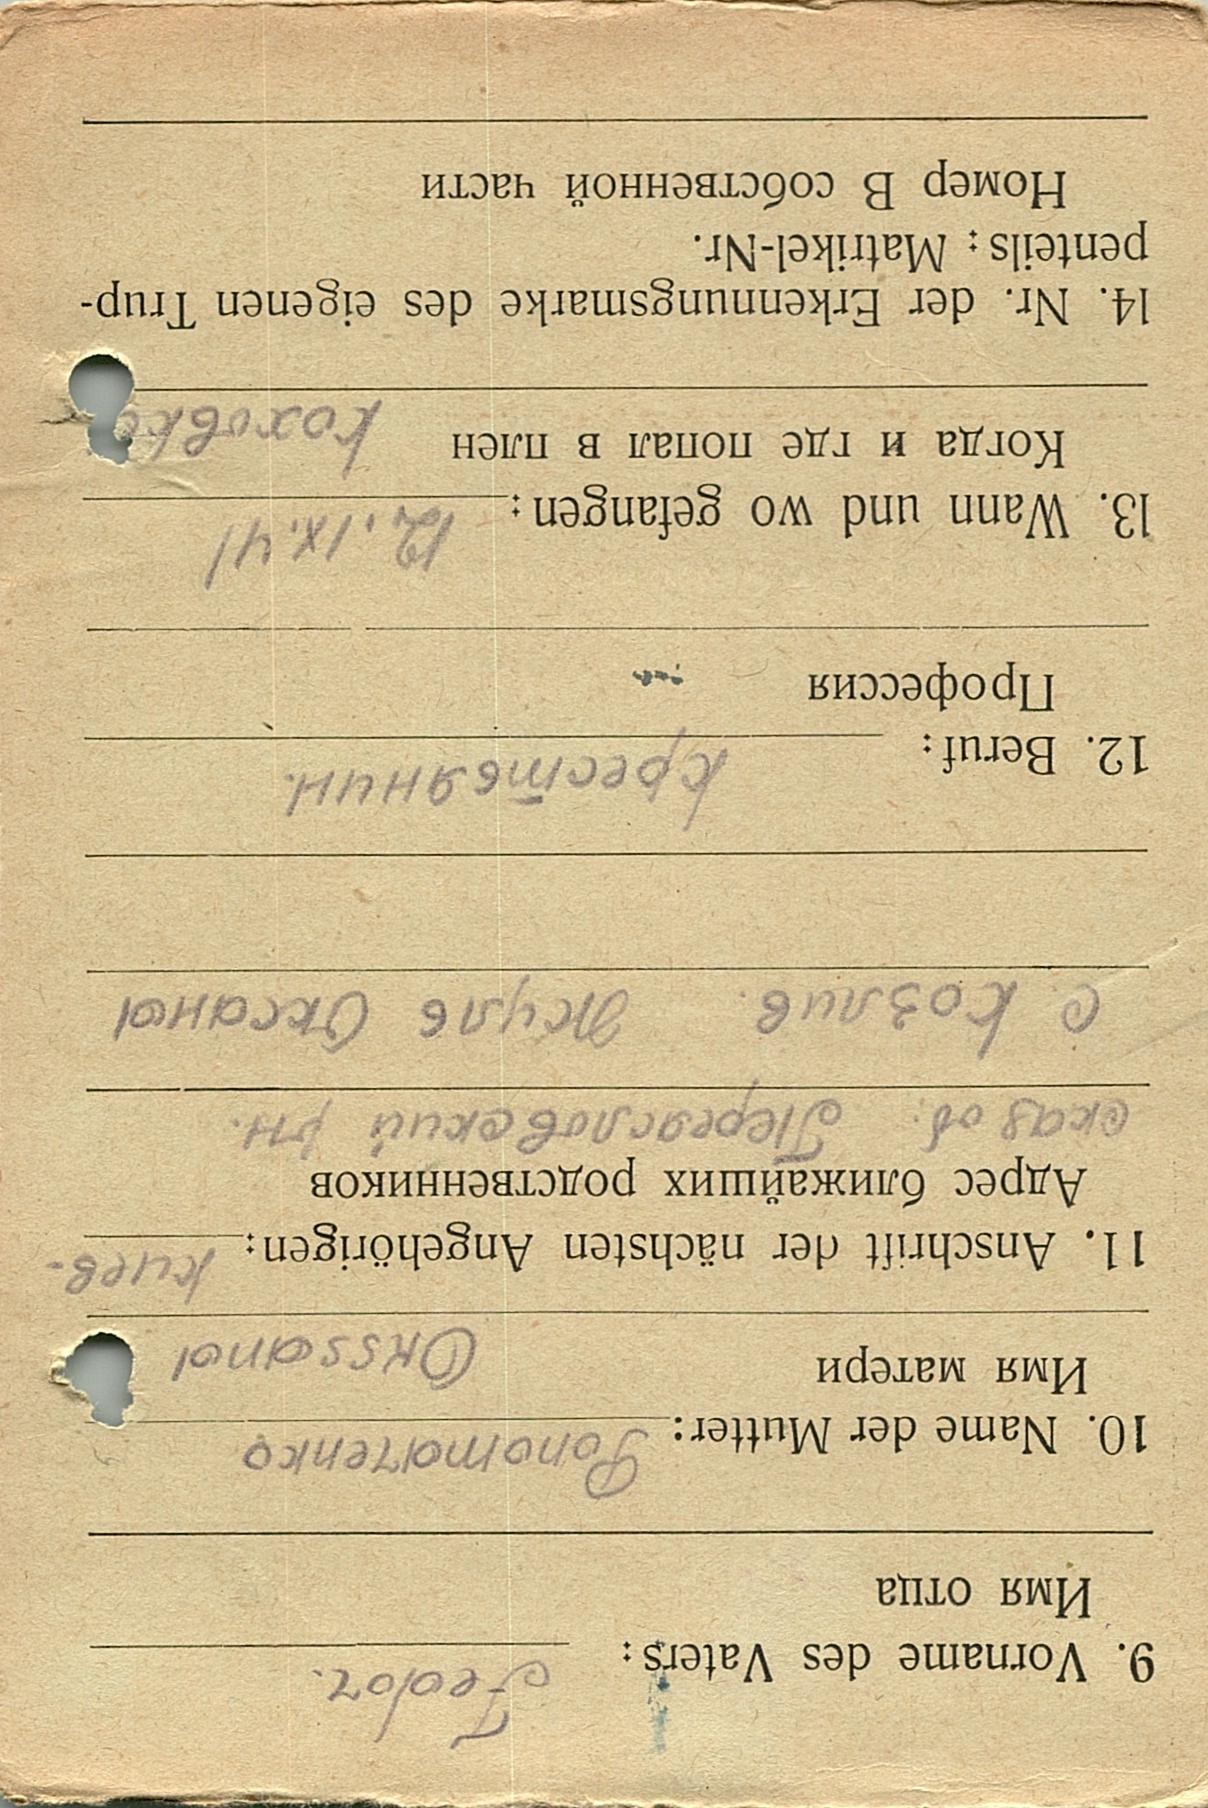 9. Vorname des Vaters: Fedor.
Имя отца
10. Name der Mutter: Ponomarenko
Имя матери Okssanы
11. Anschrift der nächsten Angehörigen: киев-
Адрес ближайших родственников
ская об. Переясловский рн.
с. Козлив. Жуль Оксаны
12. Beruf: крестьянин.
Профессия
13. Wann und wo gefangen: 12.IX.41
Когда и где попал в плен Каховка
14. Nr. der Erkennungsmarke des eigenen Trup-
penteils; Matrikel-Nr.
Номер В собственной части